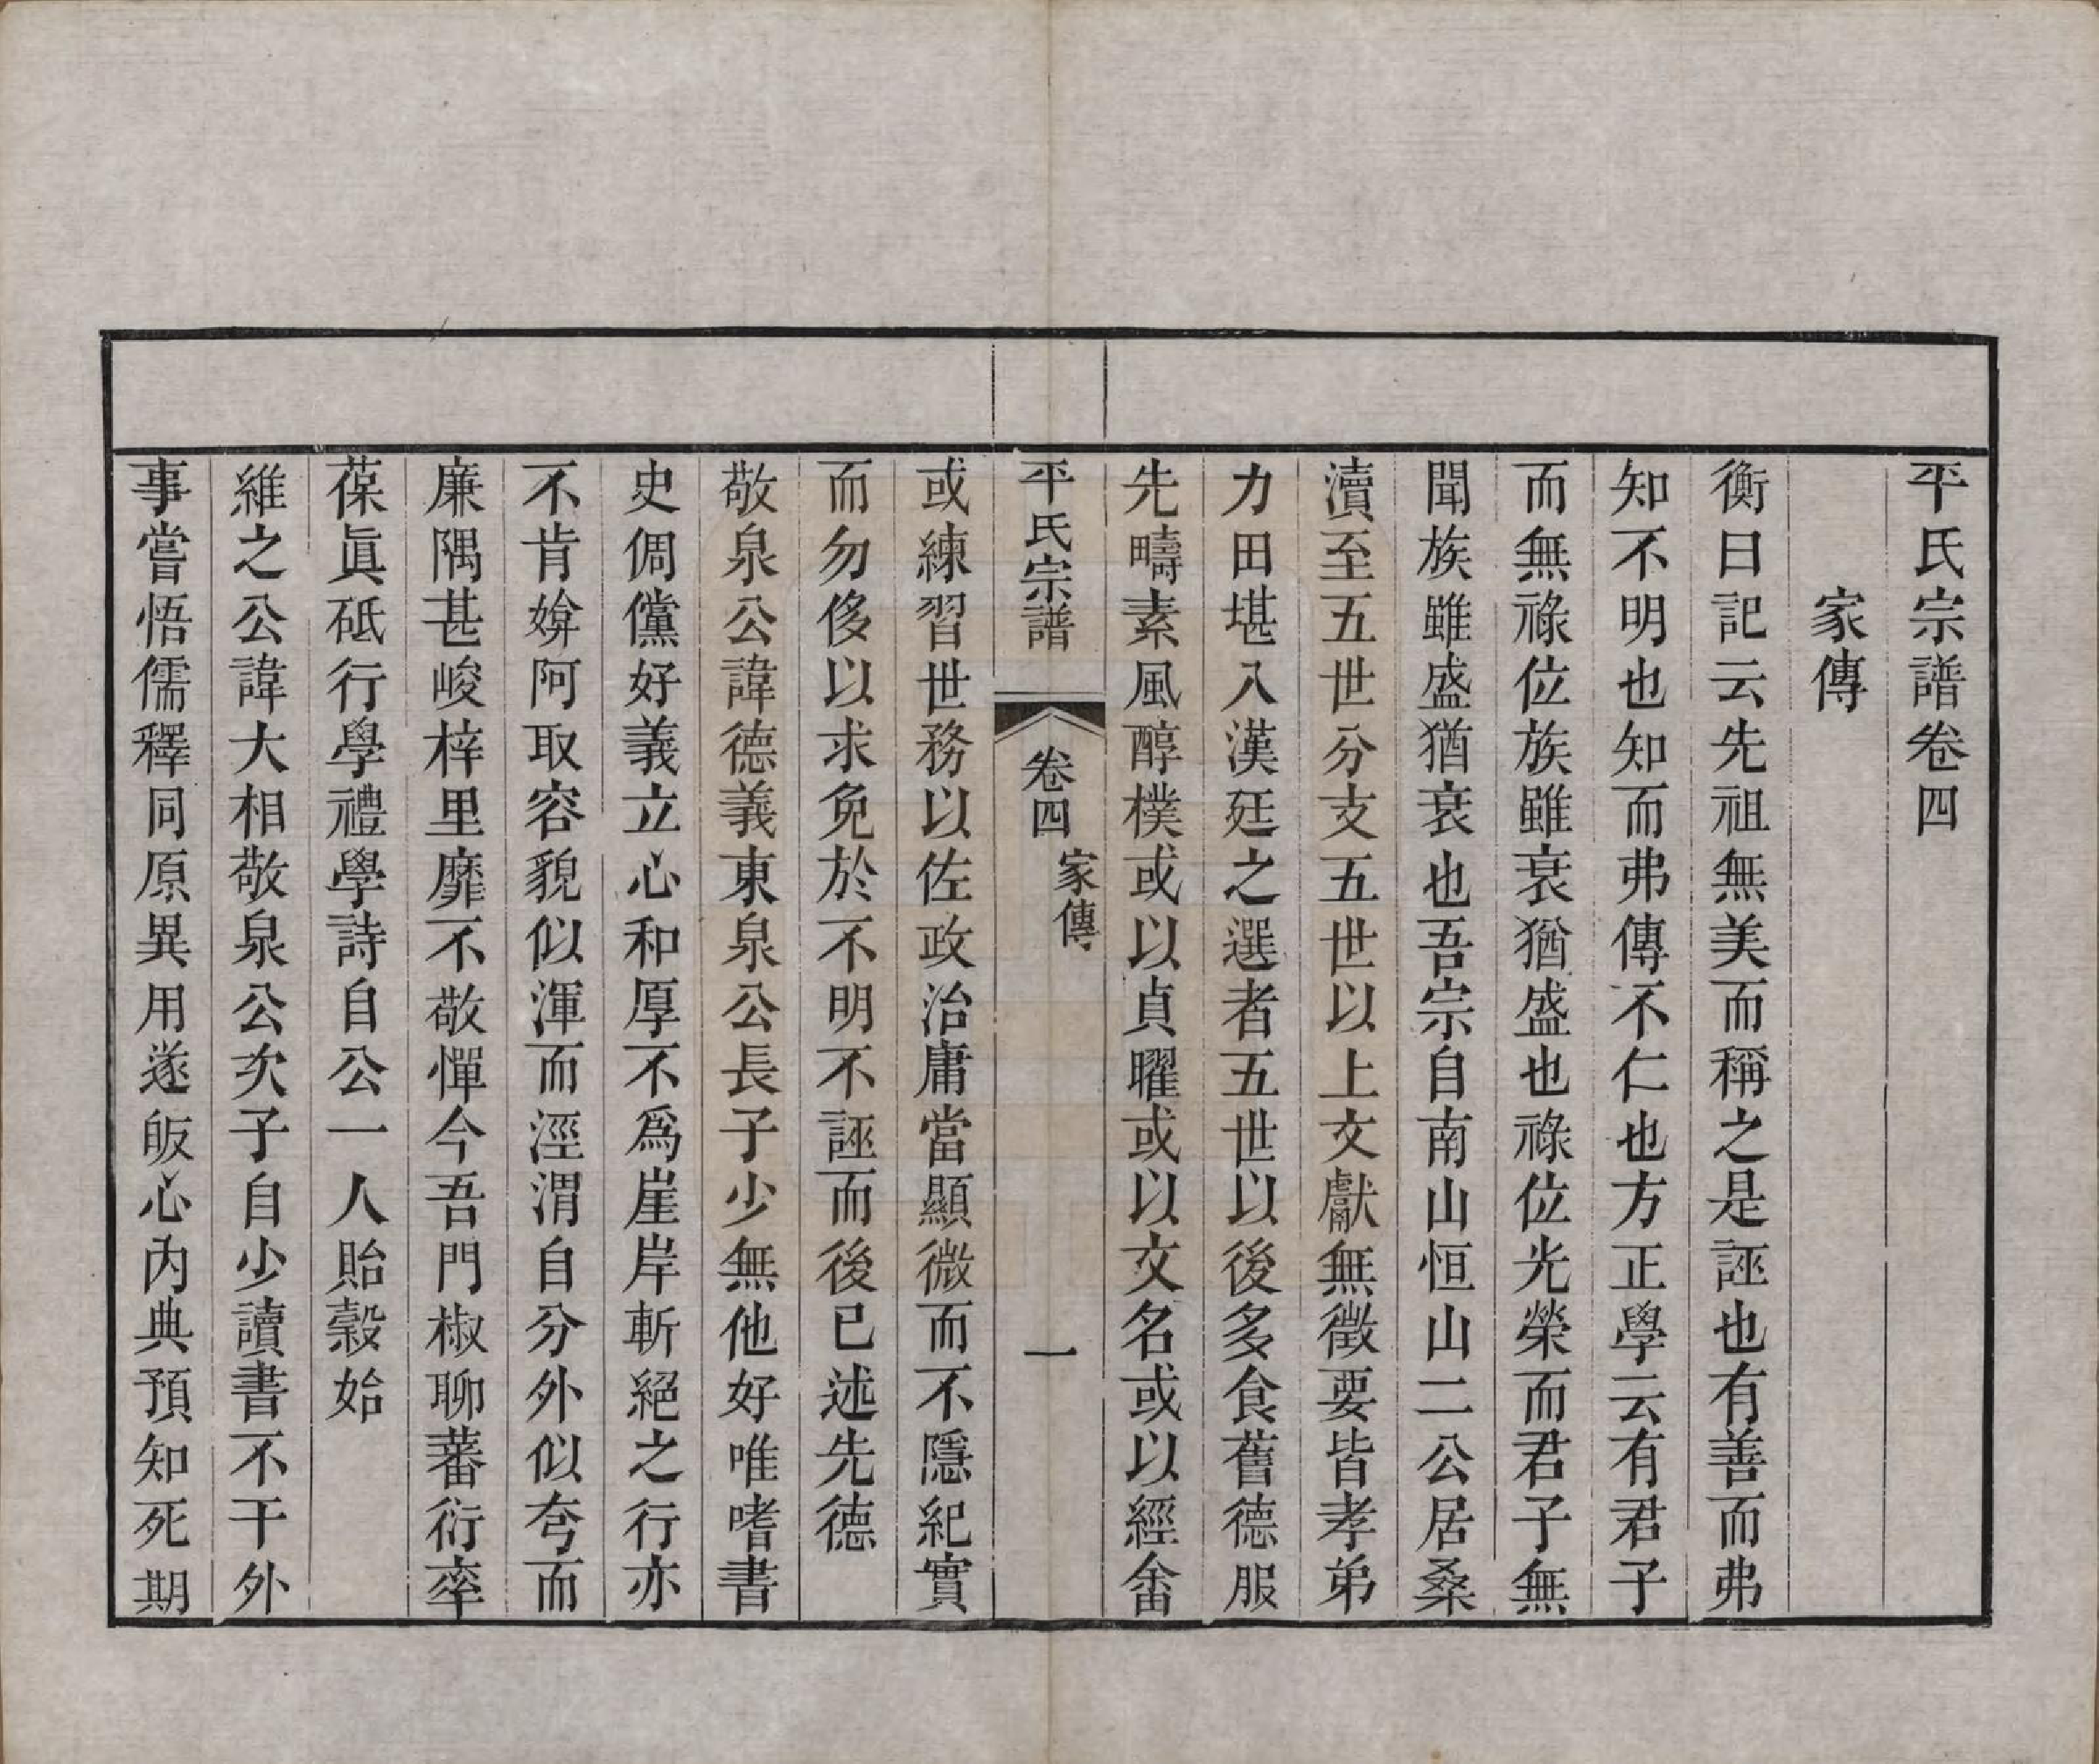 平氏宗譜卷四
家傳
衡曰記云先祖無美而稱之是誣也有善而弗
知不明也知而弗傳不仁也方正學云有君子
而無祿位族雖衰猶盛也祿位光榮而君子無
聞族雖盛猶衰也吾宗自南山恒山二公居桑
瀆至五世分支五世以上文獻無徵要皆孝弟
力田堪入漢廷之選者五世以後多食舊德服
先疇素風醇樸或以貞曜或以文名或以經畬
平氏宗譜
卷四
家傳
一
或練習世務以佐政治庸當顯微而不隱紀實
而勿侈以求免於不明不誣而後已述先德
敬泉公諱德義東泉公長子少無他好唯嗜書
史倜儻好義立心和厚不爲崖岸斬絕之行亦
不肯媕阿取容貌似渾而涇渭自分外似夸而
廉隅甚峻梓里靡不敬憚今吾門椒聊蕃衍率
葆眞砥行學禮學詩自公一人貽穀始
維之公諱大相敬泉公次子自少讀書不干外
事嘗悟儒釋同原異用遂皈心內典預知死期